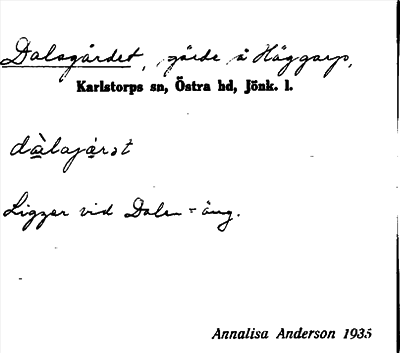 Dalsgärdet, gärde å Häggarp,
Karlstorps sn, Östra hd, Jönk. l.
dàlsjárət
Ligger vid Dalen = äng.
Annalisa Anderson 1935